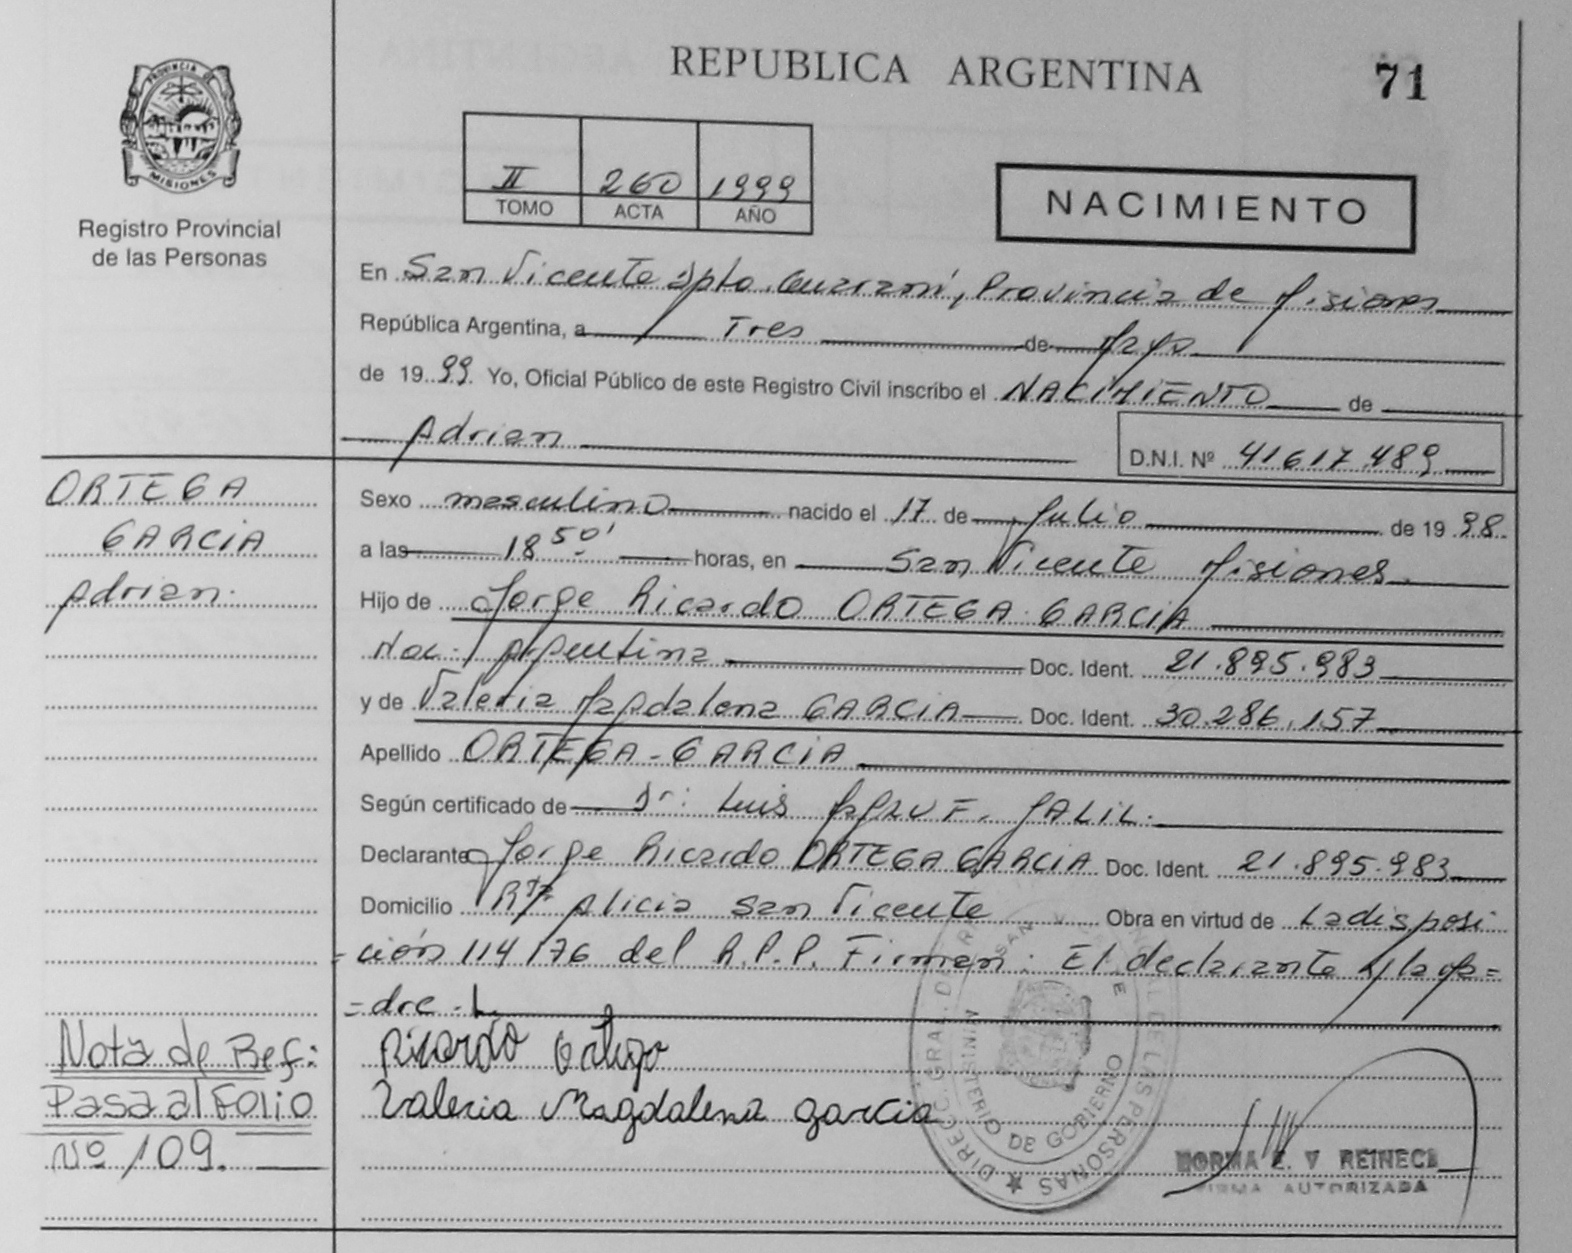 REPUBLICA ARGENTINA
71
PROVINCIA DE
MISIONES
Registro Provincial
de las Personas
II 260 1999
TOMO ACTA AÑO
NACIMIENTO
En San Vicente Dpto. Guaraní, Provincia de Misiones
República Argentina, a Tres de Mayo
de 1999 Yo, Oficial Público de este Registro Civil inscribo el NACIMIENTO de
Adrian
D.N.I. Nº 41617.489
ORTEGA
GARCIA
Adrian.
Sexo masculino nacido el 17 de Julio de 1998.
a las 18 50' horas, en San Vicente Misiones.
Hijo de Jorge Ricardo ORTEGA GARCIA
Nac. Argentina Doc. Ident. 21.895.983
y de Valeria Magdalena GARCIA Doc. Ident. 30.286.157
Apellido ORTEGA - GARCIA
Según certificado de Dr: Luis F. JALIL.
Declarante Jorge Ricardo ORTEGA GARCIA Doc. Ident. 21.895.983
Domicilio Rta Alicia San Vicente Obra en virtud de La disposi
-ción 114/76 del R.P.P. Firman: El declarante y la Ma=
=dre.
Nota de Ref:
Pasa al Folio
Nº 109.
Ricardo Ortega
Valeria Magdalena Garcia
DE LAS PERSONAS
MINISTERIO DE GOBIERNO
NORMA E. V REINECK
FIRMA AUTORIZADA